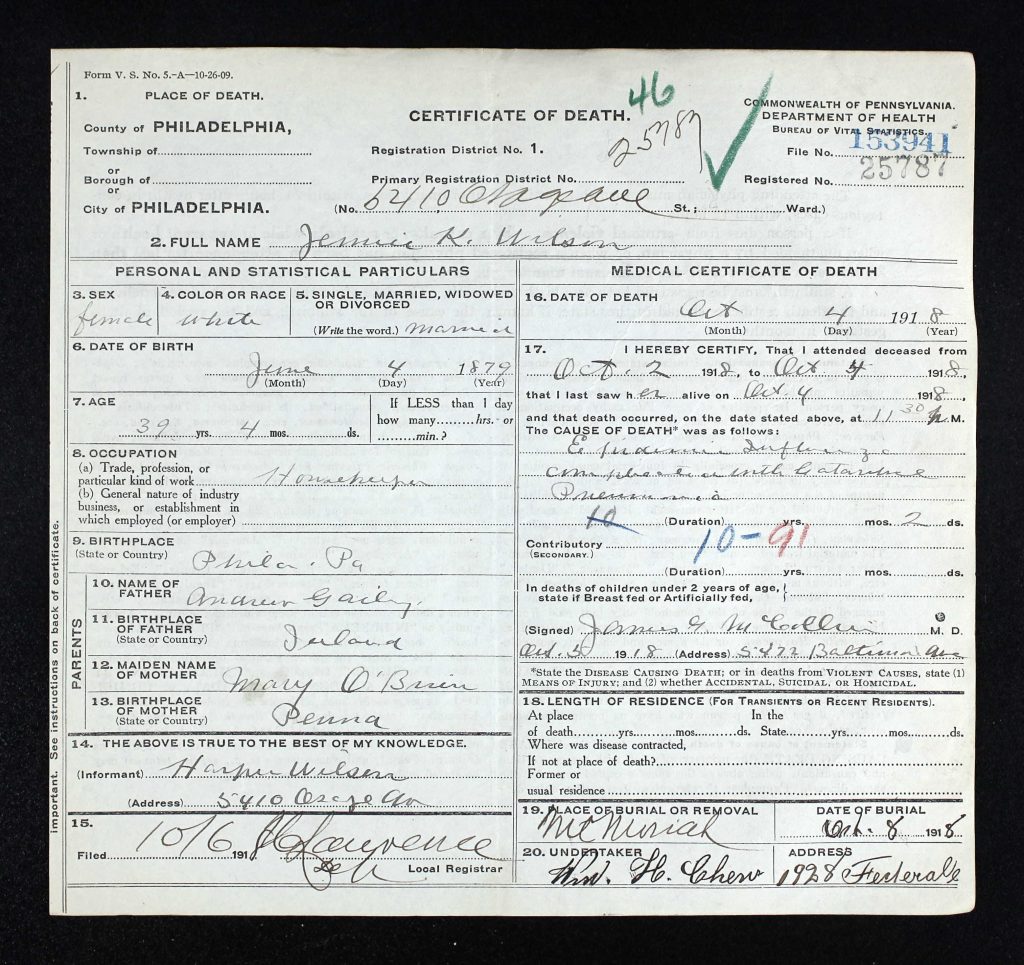 Form V. S. No. 5.-A—10-26-09.
1. PLACE OF DEATH.
County of PHILADELPHIA,
Township of
or
Borough of
or
City of PHILADELPHIA.
CERTIFICATE OF DEATH.
46
25787
Registration District No. 1.
Primary Registration District No.
(No. 5410 Osage ave St.; Ward.)
COMMONWEALTH OF PENNSYLVANIA.
DEPARTMENT OF HEALTH
BUREAU OF VITAL STATISTICS.
File No. 153941
Registered No. 25787
2. FULL NAME Jennie K. Wilson
PERSONAL AND STATISTICAL PARTICULARS
3. SEX
female
4. COLOR OR RACE
White
5. SINGLE, MARRIED, WIDOWED
OR DIVORCED
(Write the word.) married
6. DATE OF BIRTH
June 4 1879
(Month) (Day) (Year)
7. AGE
39 yrs. 4 mos. ds.
If LESS than 1 day
how many hrs. or
min.?
8. OCCUPATION
(a) Trade, profession, or
particular kind of work Housekeeper
(b) General nature of industry
business, or establishment in
which employed (or employer)
9. BIRTHPLACE
(State or Country)
Phila. Pa
PARENTS
10. NAME OF
FATHER Andrew Gailey
11. BIRTHPLACE
OF FATHER
(State or Country) Ireland
12. MAIDEN NAME
OF MOTHER Mary O'Brien
13. BIRTHPLACE
OF MOTHER
(State or Country) Penna
14. THE ABOVE IS TRUE TO THE BEST OF MY KNOWLEDGE.
(Informant) Harper Wilson
(Address) 5410 Osage Av
15.
Filed 10/6 191 Lawrence
Local Registrar
important. See instructions on back of certificate.
MEDICAL CERTIFICATE OF DEATH
16. DATE OF DEATH
Oct 4 1918
(Month) (Day) (Year)
17. I HEREBY CERTIFY, That I attended deceased from
Oct. 2 1918, to Oct 4 1918,
that I last saw her alive on Oct. 4 1918,
and that death occurred, on the date stated above, at 11 30 p M.
The CAUSE OF DEATH* was as follows:
Epidemic Influenza
complicated with Catarrhal
Pneumonia
10 (Duration) yrs. mos. 2 ds.
Contributory 10-91
(SECONDARY.)
(Duration) yrs. mos. ds.
In deaths of children under 2 years of age,
state if Breast fed or Artificially fed,
(Signed) James G. McCollin M. D.
Oct. 5 1918 (Address) 5422 Baltimore Ave
*State the DISEASE CAUSING DEATH; or in deaths from VIOLENT CAUSES, state (1)
MEANS OF INJURY; and (2) whether ACCIDENTAL, SUICIDAL, OR HOMICIDAL.
18. LENGTH OF RESIDENCE (FOR TRANSIENTS OR RECENT RESIDENTS).
At place In the
of death yrs. mos. ds. State yrs. mos. ds.
Where was disease contracted,
If not at place of death?
Former or
usual residence
19. PLACE OF BURIAL OR REMOVAL
Mt Moriah
DATE OF BURIAL
Oct. 8 1918
20. UNDERTAKER
Wm. H. Chew
ADDRESS
1928 Federal St